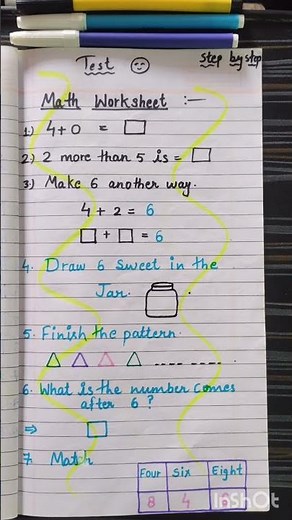 Test
Step by step
Math Worksheet :-
1.) 4+0 =
2.) 2 more than 5 is =
3.) Make 6 another way.
4 + 2 = 6
+ = 6
4. Draw 6 sweet in the
Jar.
5. Finish the pattern.
6. What is the number comes
after 6 ?
⇒
7. Match
Four Six Eight
8 4 6
InShOt